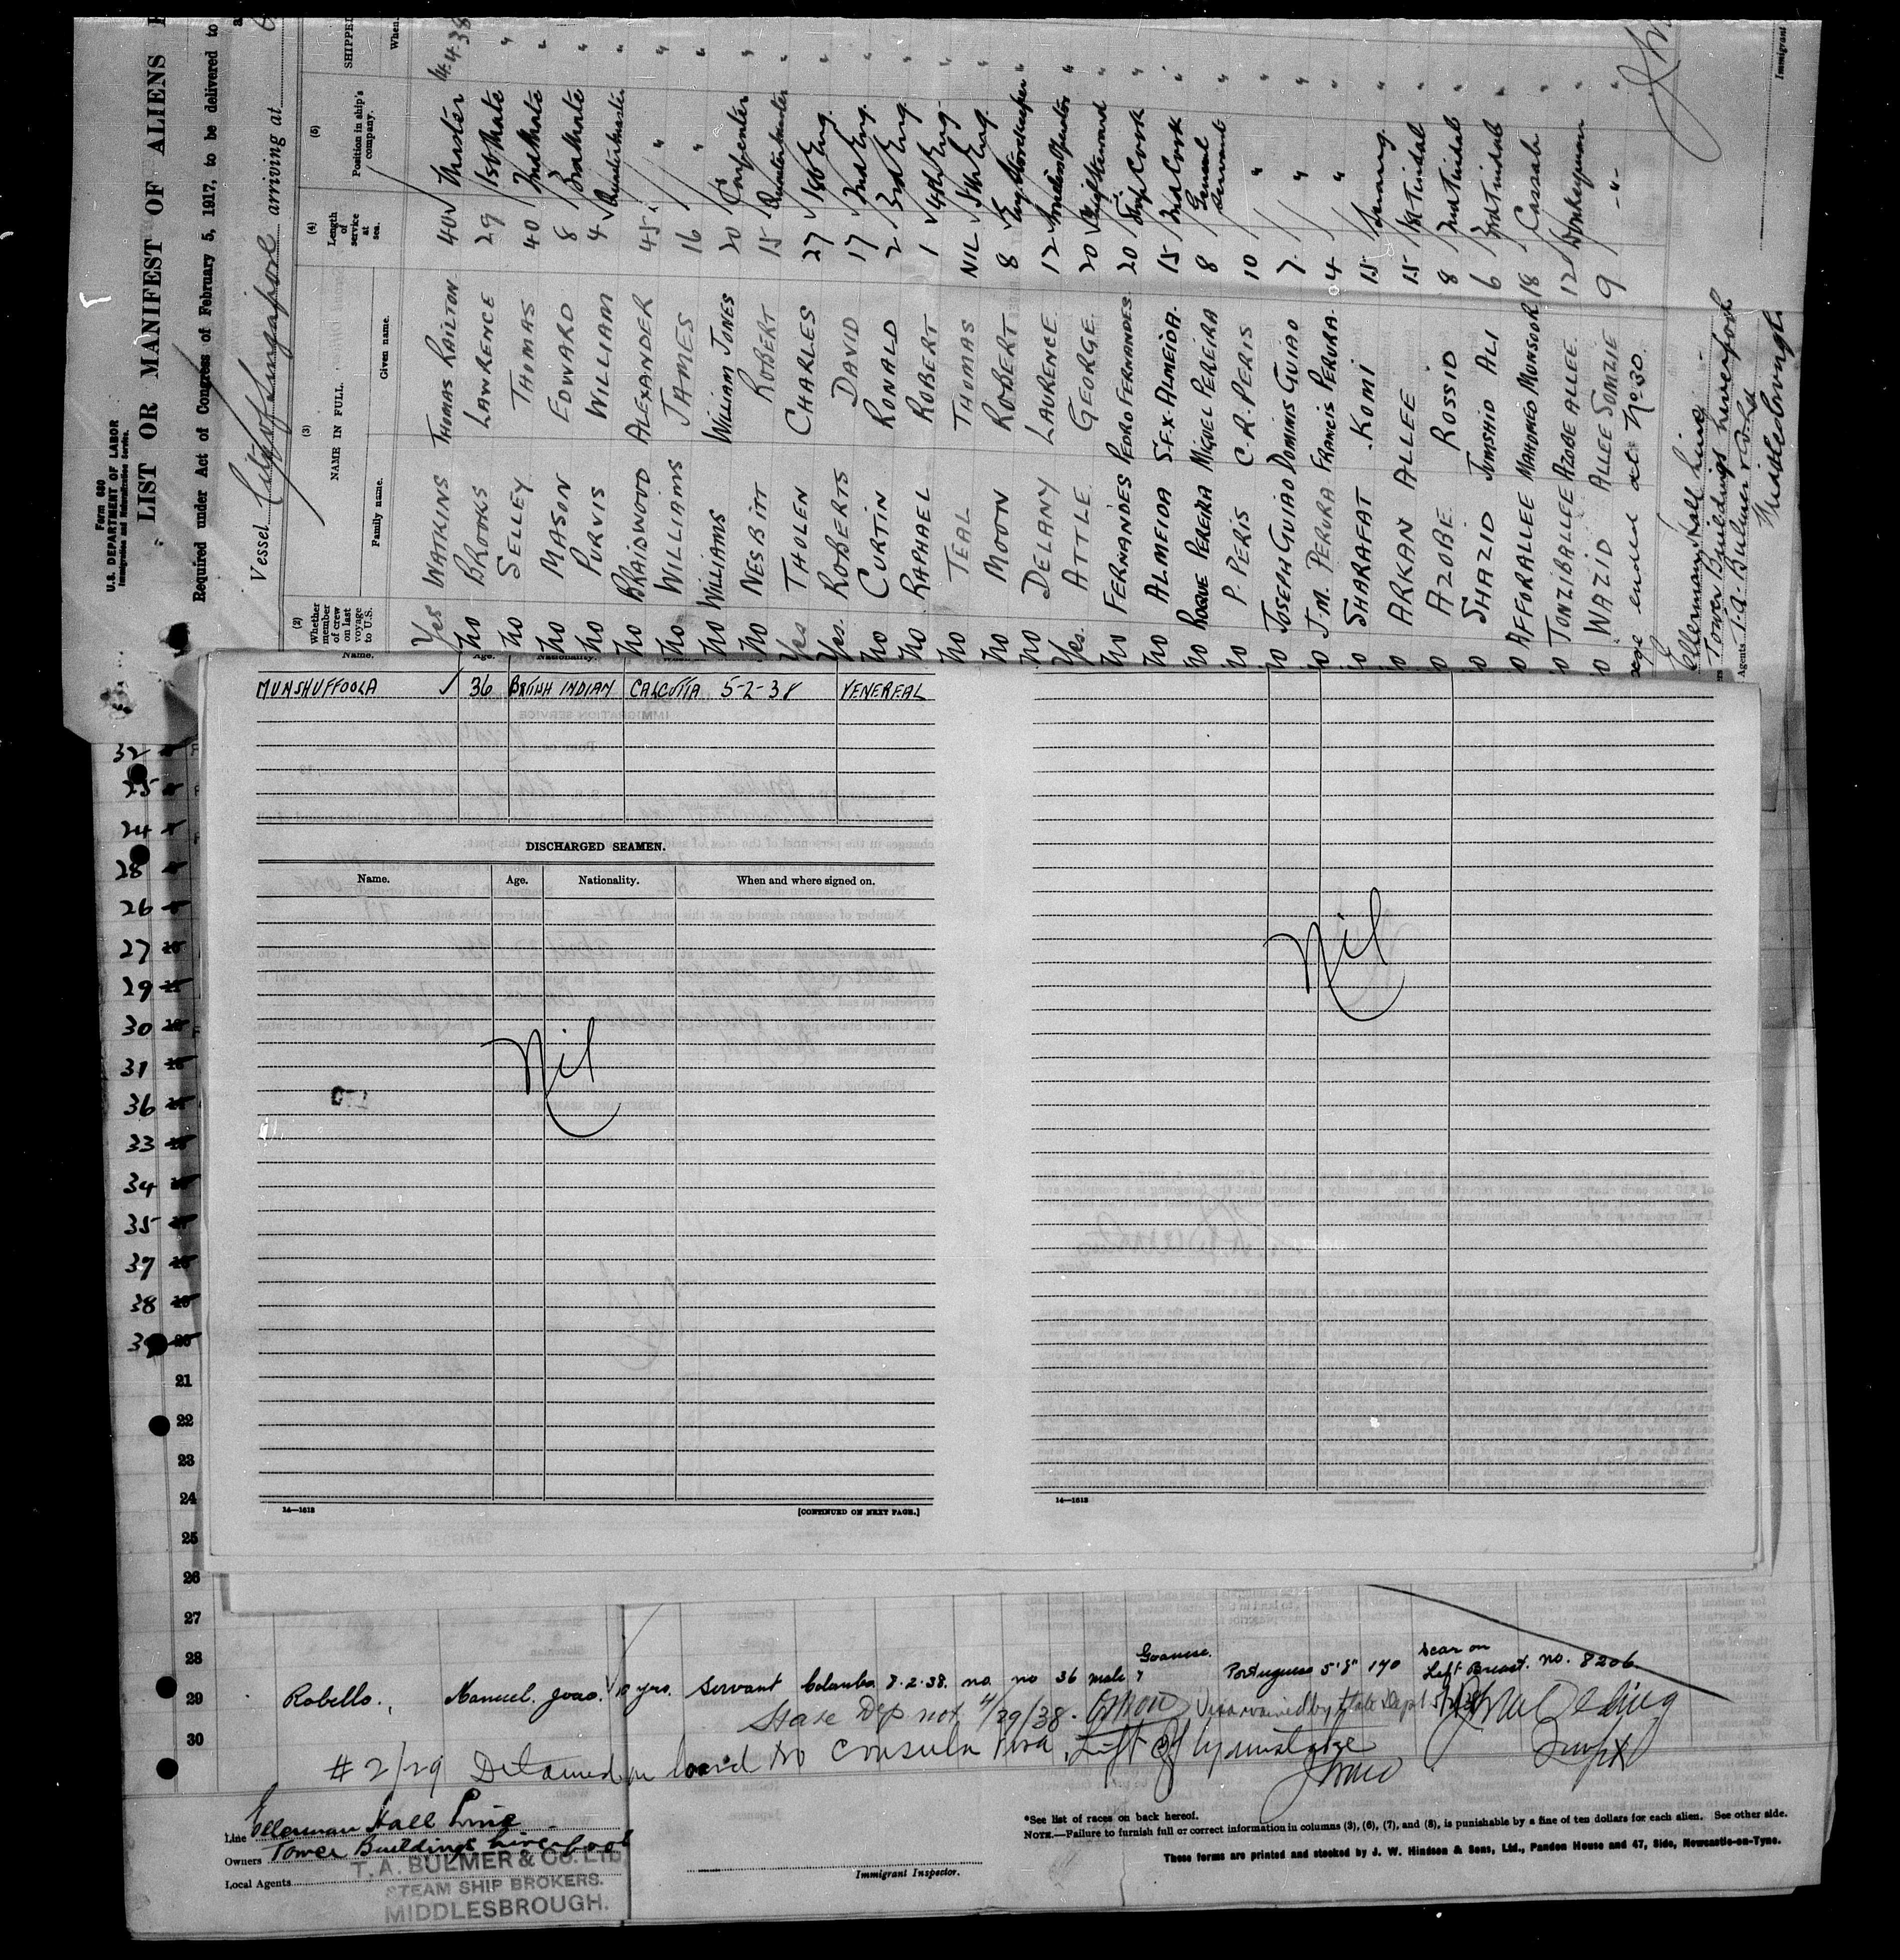 Form 680
U.S. DEPARTMENT OF LABOR
Immigration and Naturalization Service.
LIST OR MANIFEST OF ALIENS
Required under Act of Congress of February 5, 1917, to be delivered to
Vessel City of Singapore arriving at
(2) (3) (4) (5)
Whether member of crew on last voyage to U.S. NAME IN FULL Length of service at sea. Position in ship's company. SHIPPED
Family name. Given name. When.
Yes WATKINS THOMAS RAILTON 40 Master 4.4.38
No BROOKS LAWRENCE 29 1st Mate "
No SELLEY THOMAS 40 2nd Mate "
No MASON EDWARD 8 3rd Mate "
No PURVIS WILLIAM 4 Quartermaster "
No BRAIDWOOD ALEXANDER 45 " "
No WILLIAMS JAMES 16 " "
No WILLIAMS WILLIAM JONES 20 Carpenter "
No NESBITT ROBERT 15 Quartermaster "
Yes THOLEN CHARLES 27 1st Eng. "
Yes. ROBERTS DAVID 17 2nd Eng. "
No CURTIN RONALD 2 3rd Eng. "
No RAPHAEL ROBERT 1 4th Eng. "
No TEAL THOMAS NIL 5th Eng. "
No MOON ROBERT 8 Eng. Storekeeper "
No DELANY LAURENCE 12 Wireless Operator "
Yes. ATTLE GEORGE 20 Chief Steward "
No FERNANDES PEDRO FERNANDES 20 Ship Cook "
No ALMEIDA S.F.X. ALMEIDA 15 2nd Cook "
No ROQUE PEREIRA MIGUEL PEREIRA 8 General Servant "
No P. PERIS C.R. PERIS 10 " "
No JOSEPH GUIAO DOMINIS GUIAO 7 " "
No J.M. PERURA FRANCIS PERURA 4 " "
No SHARAFAT KOMI 15 Serang "
No ARKAN ALLEE 15 1st Tindal "
No AZOBE ROSSID 8 2nd Tindal "
No SHAZID JOMSHID ALI 6 3rd Tindal "
No AFFORALLEE MAHOMED MUNSOR 18 Cassab "
No TONZIBALLEE AZOBE ALLEE 12 Donkeyman "
No WAZID ALLEE SOMZIE 9 " "
ended at No. 30
Ellerman Hall Line
Tower Buildings Liverpool
Agents T.A. Bulmer & Co
Middlesbrough
Immigrant
Name. Age. Nationality.
MUNSHUFFOOLA 36 BRITISH INDIAN CALCUTTA 5-2-38 VENEREAL
DISCHARGED SEAMEN.
Name. Age. Nationality. When and where signed on.
Nil
Nil
14—1618 [CONTINUED ON NEXT PAGE.]
14—1618
32
25
24
28
26
27
29
30
31
36
33
34
35
37
38
39
21
22
23
24
25
26
27
28
29 Robello. Manuel. Joao. 10 yrs. Servant Colombo 8.2.38. no. no 36 male Goanese. Portuguese 5'8" 170 Scar on Left Breast. no. 8206
State Dep not. 4/29/38. Visa waived by State Dept
30
#2/29 Detained on board No Consular Visa. Left off by mistake
Line Ellerman Hall Line
Owners Tower Buildings Liverpool
Local Agents T. A. BULMER & CO. LTD.
STEAM SHIP BROKERS.
MIDDLESBROUGH.
Immigrant Inspector.
*See list of races on back hereof.
NOTE.—Failure to furnish full or correct information in columns (3), (6), (7), and (8), is punishable by a fine of ten dollars for each alien. See other side.
These forms are printed and stocked by J. W. Hindson & Sons, Ltd., Pandon House and 47, Side, Newcastle-on-Tyne.